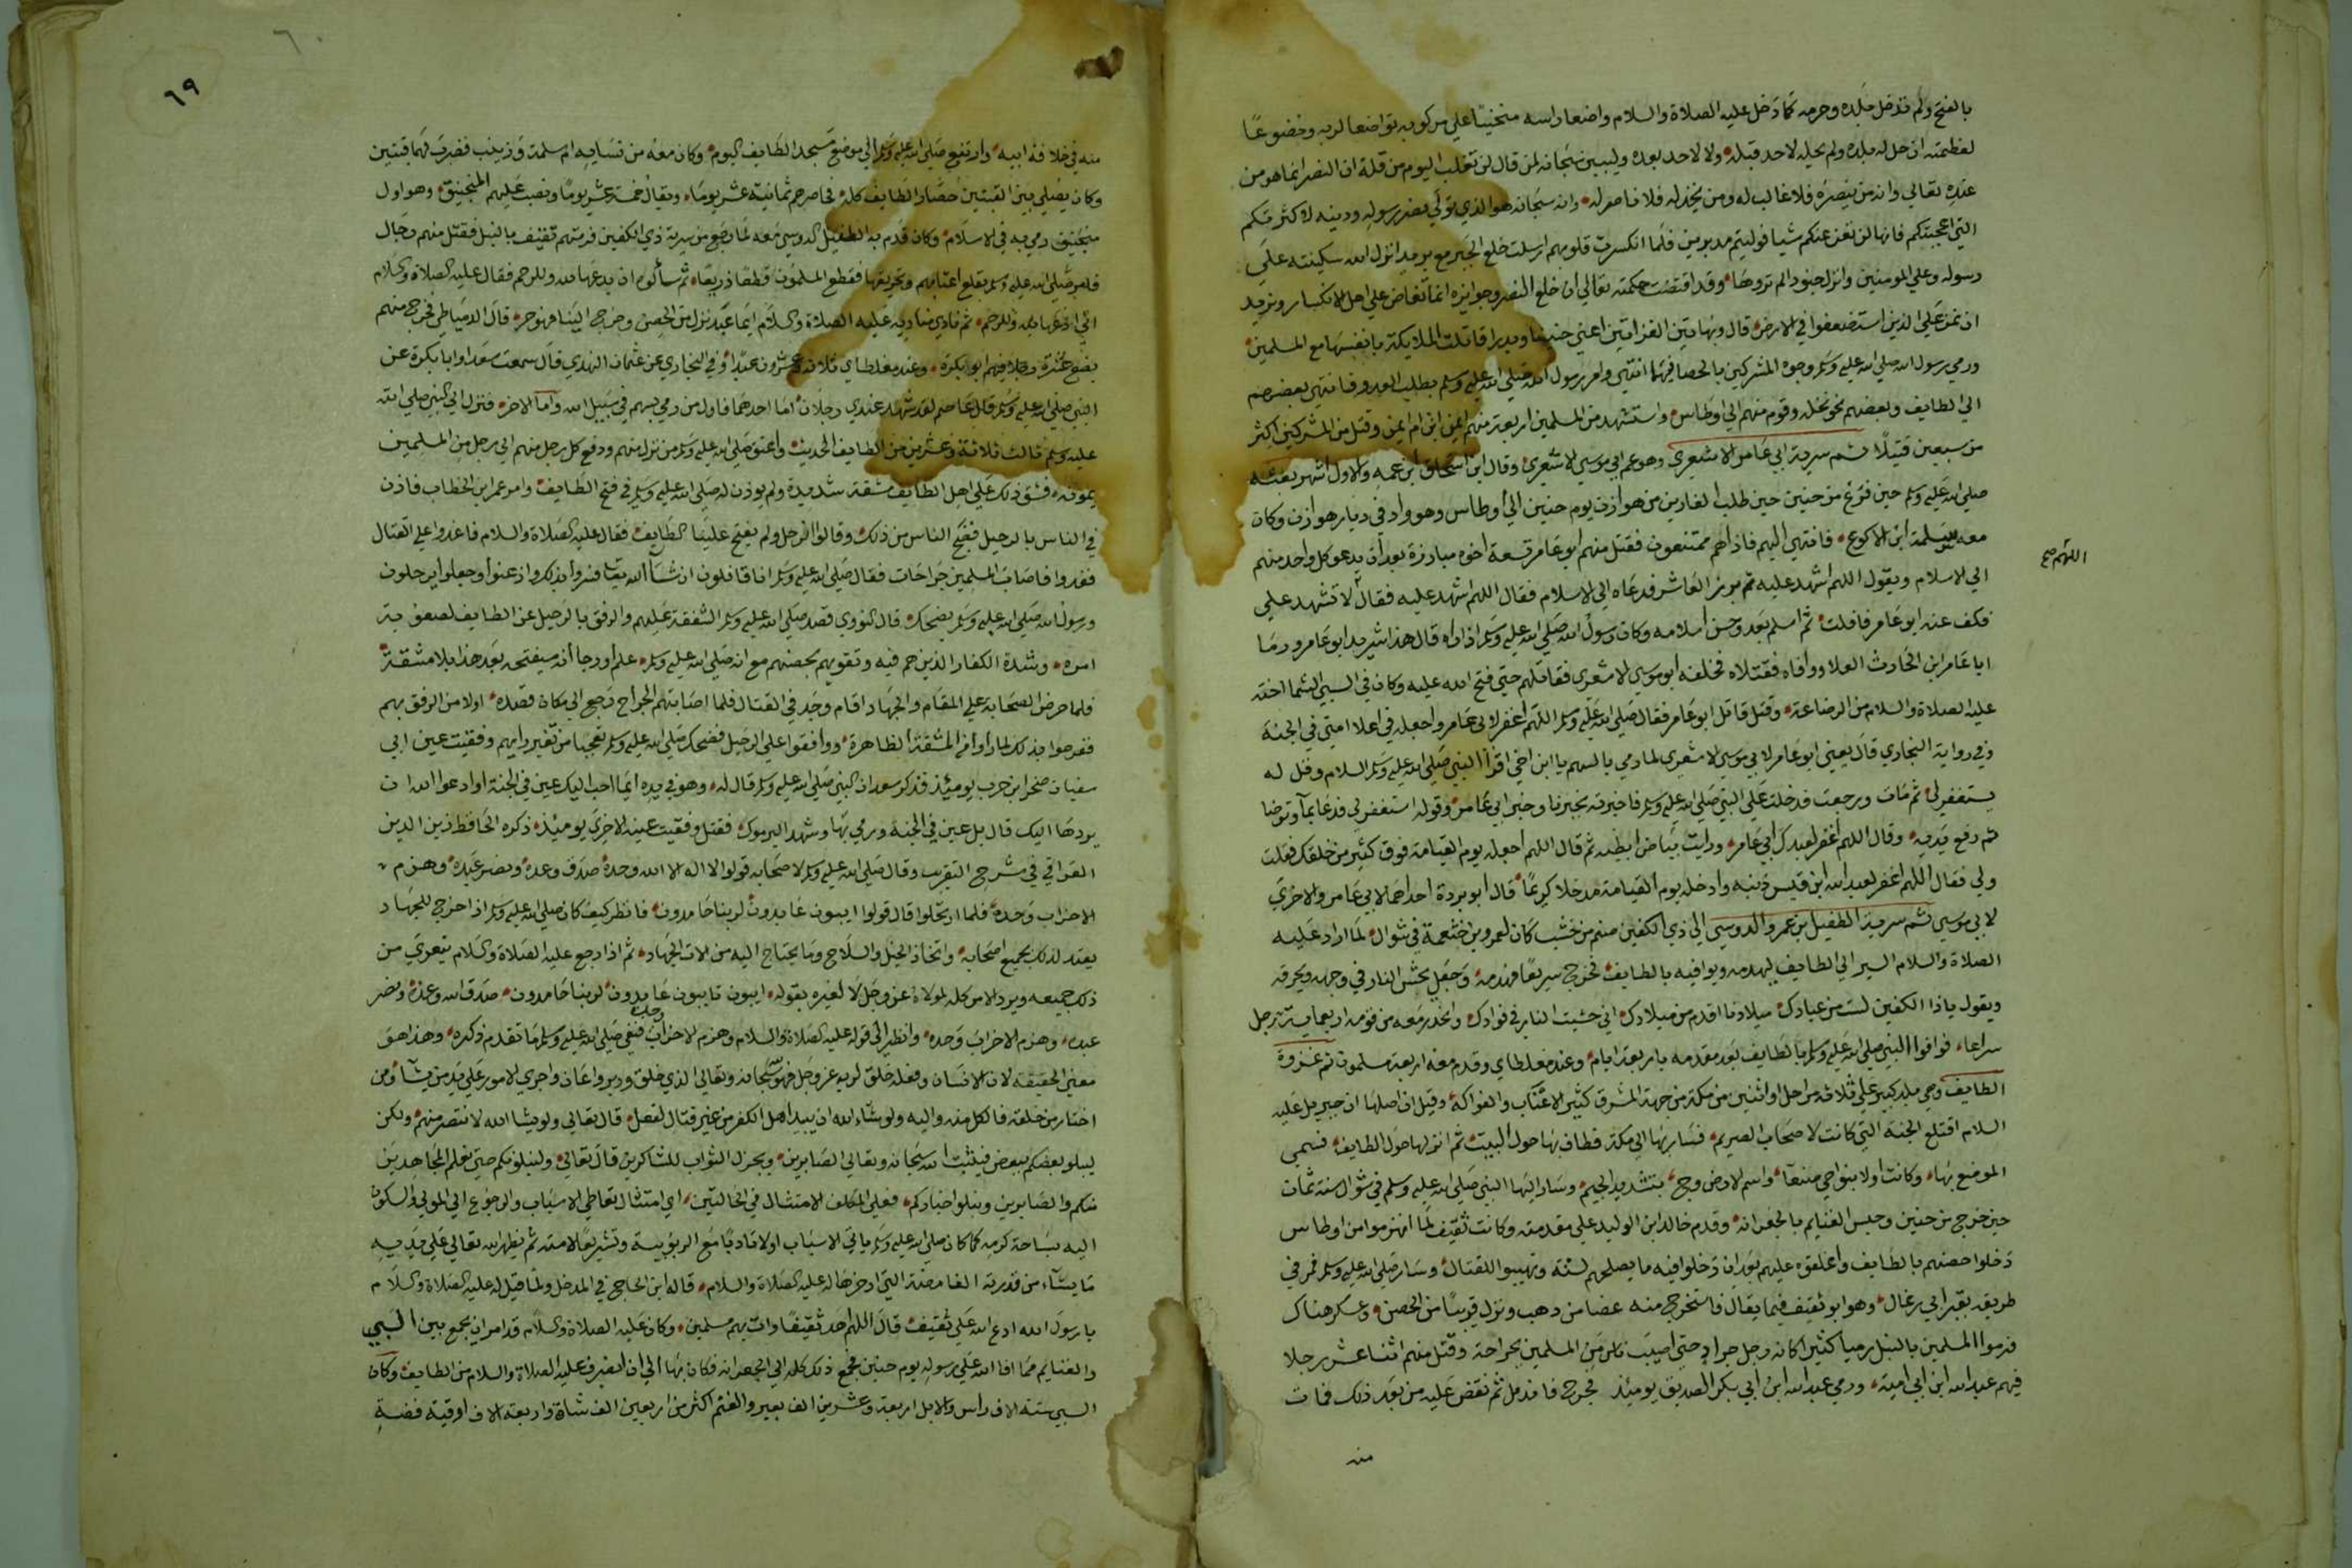 بالفتح ولم تدخل بلده وحرمه كما دخل عليه الصلاة والسلام واضعا راسه منحنيا علي مركوبه تواضعا لربه وخضوعا
لعظمته ان حل له بلده ولم يحله لاحد قبله ولا لاحد بعده وليبين سبحانه لمن قال لن نغلب اليوم من قلة ان النصر انما هو من
عنده تعالي وانه من ينصره فلا غالب له ومن يخذله فلا ناصر له وانه سبحانه هو الذي تولي نصر رسوله ودينه لا كثرتكم
التي اعجبتكم فانها لن تغن عنكم شيا فوليتم مدبرين فلما انكسرت قلوبهم ارسلت خلع الجبر مع بريد انزل الله سكينته علي
رسوله وعلي المومنين وانزل جنودا لم تروها وقد اقتضت حكمته تعالي ان خلع النصر وجوايزه انما تفاض علي اهل الانكسار ونريد
ان نمن علي الذين استضعفوا في الارض قال وبهاتين الغزاتين اعني حنينا وبدرا قاتلت الملايكة بانفسها مع المسلمين
ورمي رسول الله صلي الله عليه وسلم وجوه المشركين بالحصا فيهما انتهي وامر رسول الله صلي الله عليه وسلم بطلب العدو فانتهي بعضهم
الي الطايف وبعضهم نحو نخله وقوم منهم الي اوطاس واستشهد من المسلمين اربعة منهم ايمن ابن ام ايمن وقتل من المشركين اكثر
من سبعين قتيلا ثم سرية ابي عامر الاشعري وهو عم ابي موسي الاشعري وقال ابن اسحاق ابن عمه والاول اشهر بعثه
صلي الله عليه وسلم حين فرغ من حنين حين طلب الفارين من هوازن يوم حنين الي اوطاس وهو واد في ديار هوازن وكان
معه سلمة ابن الاكوع فانتهي اليهم فاذا هم ممتنعون فقتل منهم ابو عامر تسعة اخوه مبارزة بعد ان يدعو كل واحد منهم
الي الاسلام ويقول اللهم اشهد عليه ثم برز العاشر فدعاه الي الاسلام فقال اللهم اشهد عليه فقال لا تشهد علي
اللهم صح
فكف عنه ابو عامر فافلت ثم اسلم بعد وحسن اسلامه وكان رسول الله صلي الله عليه وسلم اذا راه قال هذا شريد ابو عامر ورما
ابا عامر ابن الحارث العلا ووافاه فقتلاه فخلفه ابو موسي الاشعري فقاتلهم حتي فتح الله عليه وكان في السبي الشما اخته
عليه الصلاة والسلام من الرضاعة وقتل قاتل ابو عامر فقال صلي الله عليه وسلم اللهم اغفر لابي عامر واجعله في اعلا امتي في الجنة
وفي رواية البخاري قال يعني ابو عامر لابي موسي الاشعري لما رمي بالسهم يا ابن اخي اقرا النبي صلي الله عليه وسلم السلام وقل له
يستغفر لي ثم مات ورجعت فدخلت علي النبي صلي الله عليه وسلم فاخبرته بخبرنا وخبر ابي عامر وقوله استغفر لي فدعا بماء وتوضا
ثم رفع يديه وقال اللهم اغفر لعبدك ابي عامر ورايت بياض ابطيه ثم قال اللهم اجعله يوم القيامة فوق كثير من خلقك فقلت
ولي فقال اللهم اغفر لعبد الله ابن قيس ذنبه وادخله يوم القيامة مدخلا كريما قال ابو بردة احداهما لابي عامر والاخري
لابي موسي ثم سرية الطفيل بن عمرو الدوسي الي ذي الكفين صنم من خشب كان لعمرو بن خثعمة في شوال لما اراد عليه
الصلاة والسلام السير الي الطايف ليهدمه ويوافيه بالطايف فخرج سريعا فهدمه وجعل يحش النار في وجهه ويحرقه
ويقول يا ذا الكفين لست من عبادك ميلادنا اقدم من ميلادك اني حشيت النار في فوادك وانحدر معه من قومه اربعماية رجل
سراعا فوافوا النبي صلي الله عليه وسلم بالطايف بعد مقدمه باربعة ايام وعند مغلطاي وقدم معه اربعة مسلمون ثم غزوة
الطايف وهي بلد كبير علي ثلاثه مراحل او اثنين من مكة من جهة المشرق كثير الاعناب والفواكه وقيل ان اصلها ان جبريل عليه
السلام اقتلع الجنة التي كانت لاصحاب الصريم فسار بها الي مكة فطاف بها حول البيت ثم انزلها حول الطايف فسمي
الموضع بها وكانت اولا بنواحي صنعا واسم الارض وج بتشديد الجيم وسار اليها النبي صلي الله عليه وسلم في شوال سنة ثمان
حين خرج من حنين وحبس الغنايم بالجعرانه وقدم خالد ابن الوليد علي مقدمته وكانت ثقيف لما انهزموا من اوطاس
دخلوا حصنهم بالطايف واغلقوه عليهم بعد ان دخلوا فيه ما يصلحهم لسنة وتهيبوا للقتال وسار صلي الله عليه وسلم فمر في
طريقه بقبر ابي رغال وهو ابو ثقيف فيما يقال فاستخرج منه غصنا من ذهب ونزل قريبا من الحصن وعسكر هناك
فرموا المسلمين بالنبل رميا كثيرا كانه رجل جراد حتي اصيب ناس من المسلمين بجراحة وقتل منهم اثنا عشر رجلا
فيهم عبد الله ابن ابي امية ورمي عبد الله ابن ابي بكر الصديق يوميذ فجرح فاندمل ثم نقض عليه من بعد ذلك فمات
منه
٦٠
٦٩
منه في خلافة ابيه وارتفع صلي الله عليه وسلم الي موضع مسجد الطايف اليوم وكان معه من نسايه ام سلمة وزينب فضرب لهما قبتين
وكان يصلي بين القبتين حصار الطايف كله فحاصرهم ثمانية عشر يوما ويقال خمسة عشر يوما ونصب عليهم المنجنيق وهو اول
منجنيق رمي به في الاسلام وكان قدم به الطفيل الدوسي معه لما رجع من سرية ذي الكفين فرمتهم ثقيف بالنبل فقتل منهم رجال
فامر صلي الله عليه وسلم بقلع اعنابهم وتحريقها فقطع المسلمون قطعا ذريعا ثم سألوه ان يدعها لله وللرحم فقال عليه الصلاة والسلام
اني ادعها لله وللرحم ثم نادي مناديه عليه الصلاة والسلام ايما عبد نزل من الحصن وخرج الينا فهو حر قال الدمياطي فخرج منهم
بضع عشرة رجلا فيهم ابو بكرة وعند مغلطاي ثلاثة وعشرون عبدا وفي البخاري عن عثمان النهدي قال سمعت سعدا وابا بكرة عن
النبي صلي الله عليه وسلم قال عاصم لقد شهد عندي رجلان اما احدهما فاول من رمي بسهم في سبيل الله واما الاخر فنزل الي النبي صلي الله
عليه وسلم ثالث ثلاثة وعشرين من الطايف الحديث واعتق صلي الله عليه وسلم من نزل منهم ودفع كل رجل منهم الي رجل من المسلمين
يمونه فشق ذلك علي اهل الطايف مشقة شديدة ولم يوذن له صلي الله عليه وسلم في فتح الطايف وامر عمر ابن الخطاب فاذن
في الناس بالرحيل فضج الناس من ذلك وقالوا نرحل ولم يفتح علينا الطايف فقال عليه الصلاة والسلام فاغدوا علي القتال
فغدوا فاصاب المسلمين جراحات فقال صلي الله عليه وسلم انا قافلون ان شاء الله تعا فسروا بذلك واذعنوا وجعلوا يرحلون
ورسول الله صلي الله عليه وسلم يضحك قال النووي قصد صلي الله عليه وسلم الشفقة عليهم والرفق بالرحيل عن الطايف لصعوبة
امره وشدة الكفار الذين هم فيه وتقويهم بحصنهم مع انه صلي الله عليه وسلم علم او رجا انه سيفتحه بعد هذا بلا مشقة
فلما حرض الصحابة علي المقام والجهاد اقام وجد في القتال فلما اصابتهم الجراح رجع الي ما كان قصده اولا من الرفق بهم
ففرحوا بذلك لما راوا من المشقة الظاهرة ووافقوا علي الرحيل فضحك صلي الله عليه وسلم تعجبا من تغير رايهم وفقيت عين ابي
سفيان صخر ابن حرب يوميذ فذكر سعد ان النبي صلي الله عليه وسلم قال له وهو في يده ايما احب اليك عين في الجنة او ادعوا الله ان
يردها اليك قال بل عين في الجنة ورمي بها وشهد اليرموك فقتل وفقيت عينه الاخري يوميذ ذكره الحافظ زين الدين
العراقي في شرح التقريب وقال صلي الله عليه وسلم لاصحابه قولوا لا اله الا الله وحده صدق وعده ونصر عبده وهزم
الاحزاب وحده فلما ارتحلوا قال قولوا ايبون عابدون لربنا حامدون فانظر كيف كان صلي الله عليه وسلم اذا خرج للجهاد
يعتد لذلك بجميع اصحابه واتخاذ الخيل والسلاح وما يحتاج اليه من الات الجهاد ثم اذا رجع عليه الصلاة والسلام يتعري من
ذلك جميعه ويرد الامر كله لمولاه عز وجل لا لغيره بقوله ايبون تايبون عابدون لربنا حامدون صدق الله وعده ونصر
عبده وهزم الاحزاب وحده وانظر الي قوله عليه الصلاة والسلام وهزم الاحزاب وحده فنفي صلي الله عليه وسلم ما تقدم ذكره وهذا هو
معني الحقيقة لان الانسان وفعله خلق لربه عز وجل فهو سبحانه وتعالي الذي خلق ودبر واعان واجري الامور علي يد من يشاء ومن
اختار من خلقه فالكل منه واليه ولو شاء الله ان يبيد اهل الكفر من غير قتال لفعل قال تعالي ولو يشا الله لانتصر منهم ولكن
ليبلو بعضكم ببعض فيثبت الله سبحانه وتعالي الصابرين ويجزل الثواب للشاكرين قال تعالي ولنبلونكم حتي نعلم المجاهدين
منكم والصابرين ونبلو اخباركم فعلي المكلف الامتثال في الحالتين اي امتثال تعاطي الاسباب والرجوع الي المولي والسكون
اليه بساحة كرمه كما كان صلي الله عليه وسلم ياتي الاسباب اولا تادبا مع الربوبية وتشريعا لامته ثم يظهر الله تعالي علي يديه
ما يشاء من قدرته الغامضة التي ادخرها له عليه الصلاة والسلام قاله ابن الحاج في المدخل ولما قيل له عليه الصلاة والسلام
يا رسول الله ادع الله علي ثقيف قال اللهم اهد ثقيفا وات بهم مسلمين وكان عليه الصلاة والسلام قد امر ان يجمع بين السبي
والغنايم مما افا الله علي رسوله يوم حنين فجمع ذلك كله الي الجعرانه فكان بها الي ان انصرف عليه الصلاة والسلام من الطايف وكان
السبي ستة الاف راس والابل اربعة وعشرين الف بعير والغنم اكثر من اربعين الف شاة واربعة الاف اوقية فضة